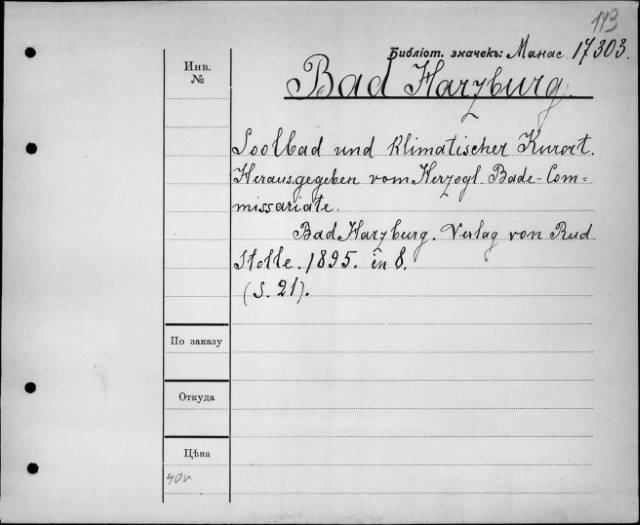 173
Библіот. значекъ: Манас 17303.
Инв.
№
Bad Harzburg.
Soolbad und klimatischer Kurort.
Herausgegeben vom Herzogl. Bade-Com=
missariate.
Bad Harzburg. Verlag von Rud
Stolle. 1895. in 8.
(S. 21).
По заказу
Откуда
Цѣна